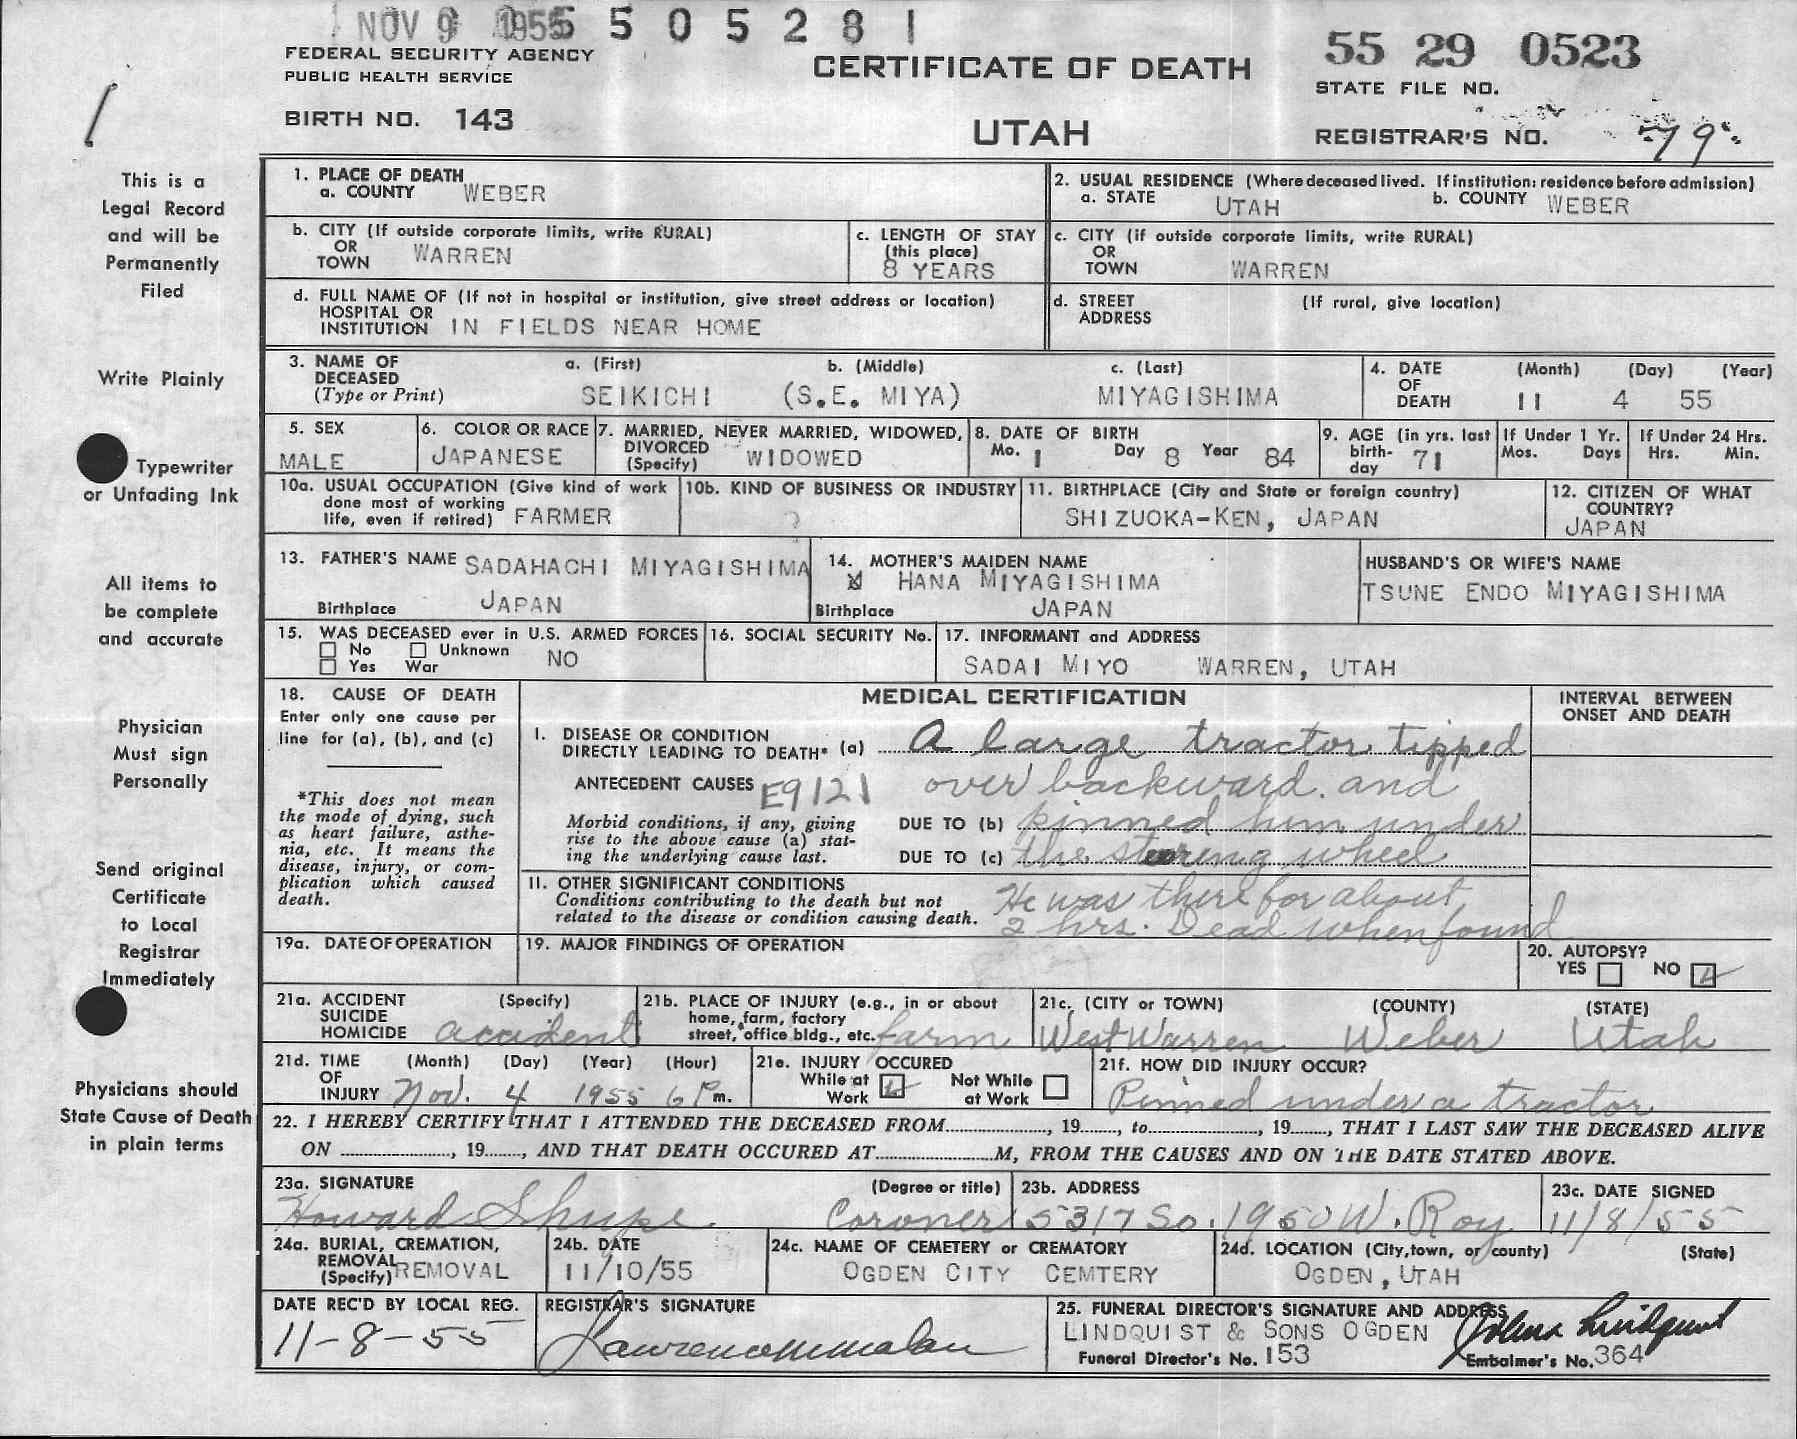 NOV 9 1955 5 5 0 5 2 8 1
FEDERAL SECURITY AGENCY
PUBLIC HEALTH SERVICE
BIRTH NO. 143
CERTIFICATE OF DEATH
UTAH
55 29 0523
STATE FILE NO.
REGISTRAR'S NO. 79
This is a
Legal Record
and will be
Permanently
Filed
Write Plainly
Typewriter
or Unfading Ink
All items to
be complete
and accurate
Physician
Must sign
Personally
Send original
Certificate
to Local
Registrar
Immediately
Physicians should
State Cause of Death
in plain terms
1. PLACE OF DEATH
a. COUNTY WEBER
2. USUAL RESIDENCE (Where deceased lived. If institution: residence before admission)
a. STATE UTAH b. COUNTY WEBER
b. CITY (If outside corporate limits, write RURAL)
OR
TOWN WARREN
c. LENGTH OF STAY
(this place)
8 YEARS
c. CITY (if outside corporate limits, write RURAL)
OR
TOWN WARREN
d. FULL NAME OF (If not in hospital or institution, give street address or location)
HOSPITAL OR
INSTITUTION IN FIELDS NEAR HOME
d. STREET (If rural, give location)
ADDRESS
3. NAME OF
DECEASED
(Type or Print)
a. (First) b. (Middle) c. (Last)
SEIKICHI (S.E. MIYA) MIYAGISHIMA
4. DATE
OF
DEATH
(Month) (Day) (Year)
11 4 55
5. SEX
MALE
6. COLOR OR RACE
JAPANESE
7. MARRIED, NEVER MARRIED, WIDOWED,
DIVORCED
(Specify) WIDOWED
8. DATE OF BIRTH
Mo. 1 Day 8 Year 84
9. AGE (in yrs. last
birth-
day 71
If Under 1 Yr.
Mos. Days
If Under 24 Hrs.
Hrs. Min.
10a. USUAL OCCUPATION (Give kind of work
done most of working
life, even if retired) FARMER
10b. KIND OF BUSINESS OR INDUSTRY
11. BIRTHPLACE (City and State or foreign country)
SHIZUOKA-KEN, JAPAN
12. CITIZEN OF WHAT
COUNTRY?
JAPAN
13. FATHER'S NAME SADAHACHI MIYAGISHIMA
Birthplace JAPAN
14. MOTHER'S MAIDEN NAME
HANA MIYAGISHIMA
Birthplace JAPAN
HUSBAND'S OR WIFE'S NAME
TSUNE ENDO MIYAGISHIMA
15. WAS DECEASED ever in U.S. ARMED FORCES
No Unknown NO
Yes War
16. SOCIAL SECURITY No.
17. INFORMANT and ADDRESS
SADAI MIYO WARREN, UTAH
18. CAUSE OF DEATH
Enter only one cause per
line for (a), (b), and (c)
*This does not mean
the mode of dying, such
as heart failure, asthe-
nia, etc. It means the
disease, injury, or com-
plication which caused
death.
MEDICAL CERTIFICATION
INTERVAL BETWEEN
ONSET AND DEATH
I. DISEASE OR CONDITION
DIRECTLY LEADING TO DEATH* (a) A large tractor tipped
ANTECEDENT CAUSES E9121 over backward and
Morbid conditions, if any, giving
rise to the above cause (a) stat-
ing the underlying cause last.
DUE TO (b) pinned him under
DUE TO (c) the steering wheel
II. OTHER SIGNIFICANT CONDITIONS
Conditions contributing to the death but not
related to the disease or condition causing death.
He was there for about
2 hrs. Dead when found
19a. DATE OF OPERATION
19. MAJOR FINDINGS OF OPERATION
20. AUTOPSY?
YES NO
21a. ACCIDENT (Specify)
SUICIDE
HOMICIDE accident
21b. PLACE OF INJURY (e.g., in or about
home, farm, factory
street, office bldg., etc. farm
21c. (CITY or TOWN) (COUNTY) (STATE)
West Warren Weber Utah
21d. TIME (Month) (Day) (Year) (Hour)
OF
INJURY Nov. 4 1955 6 P m.
21e. INJURY OCCURED
While at Work Not While at Work
21f. HOW DID INJURY OCCUR?
Pinned under a tractor
22. I HEREBY CERTIFY THAT I ATTENDED THE DECEASED FROM............, 19......, to............, 19......, THAT I LAST SAW THE DECEASED ALIVE
ON ............, 19......, AND THAT DEATH OCCURED AT............M, FROM THE CAUSES AND ON THE DATE STATED ABOVE.
23a. SIGNATURE (Degree or title)
Howard Shupe Coroner
23b. ADDRESS
5317 So. 1950 W. Roy
23c. DATE SIGNED
11/8/55
24a. BURIAL, CREMATION,
REMOVAL
(Specify) REMOVAL
24b. DATE
11/10/55
24c. NAME OF CEMETERY or CREMATORY
OGDEN CITY CEMTERY
24d. LOCATION (City, town, or county) (State)
OGDEN, UTAH
DATE REC'D BY LOCAL REG.
11-8-55
REGISTRAR'S SIGNATURE
25. FUNERAL DIRECTOR'S SIGNATURE AND ADDRESS
LINDQUIST & SONS OGDEN
Lindquist
Funeral Director's No. 153 Embalmer's No. 364